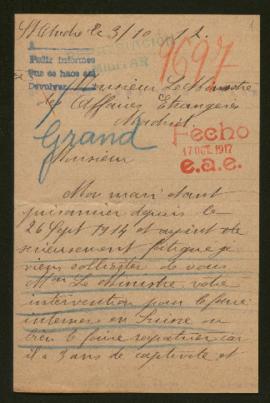 St André le 3/10
1697
A
Pedir informes
que se hace así
Devolver
Monsieur Le Ministre
des Affaires Etrangères
Madrid.
Grand
Fecho
17 OCT. 1917
e.a.e.
Monsieur
Mon mari étant
prisonnier depuis le
26 Sept 1914 et
sérieusement fatigué je
viens solliciter de vous
Mon. Le Ministre votre
intervention pour le faire
interner en Suisse ou
bien le faire rapatrier car
il a 3 ans de captivité et